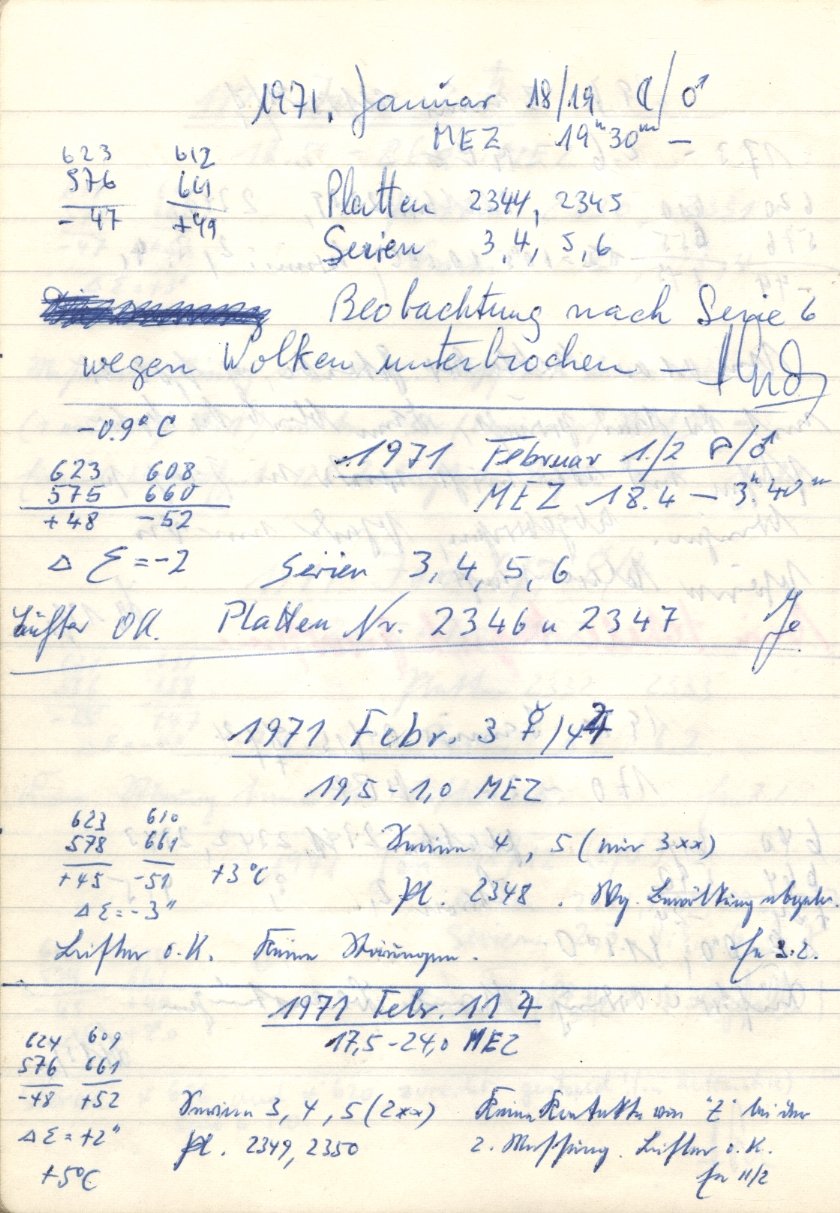 1971. Januar 18/19 ☾/♂
MEZ 19ʰ30ᵐ —
623 612
576 661
-47 +49
Platten 2344, 2345
Serien 3, 4, 5, 6
Beobachtung nach Serie 6
wegen Wolken unterbrochen —
-0.9° C
1971 Februar 1./2 ☾/♂
MEZ 18.4 — 3ʰ40ᵐ
623 608
575 660
+48 -52
Δ Σ = -2
Serien 3, 4, 5, 6
Lüfter OK. Platten Nr. 2346 u 2347
1971 Febr. 3 ☿/4 ♃
19,5 - 1,0 MEZ
623 610
578 661
+45 -51 +3°C
Δ Σ = -3"
Serien 4, 5 (nur 3xx)
Pl. 2348. Wg. Bewölkung abgebr.
Lüfter o.K. Keine Störungen. 3.2.
1971 Febr. 11 ♃
17,5 - 24,0 MEZ
624 609
576 661
-48 +52
Δ Σ = +2"
+5°C
Serien 3, 4, 5 (2xx)
Pl. 2349, 2350
Keine Kontakte von "Z" bei der
2. Messung. Lüfter o.K.
11/2